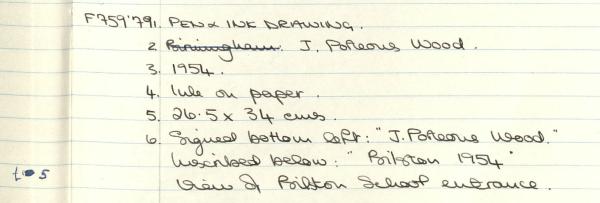 F759'791. PEN & INK DRAWING.
2. Birmingham. J. Porteous Wood.
3. 1954.
4. Ink on paper.
5. 26.5 x 34 cms.
6. Signed bottom left: "J. Porteous Wood."
Inscribed below: "Bilston 1954"
View of Bilston School entrance.